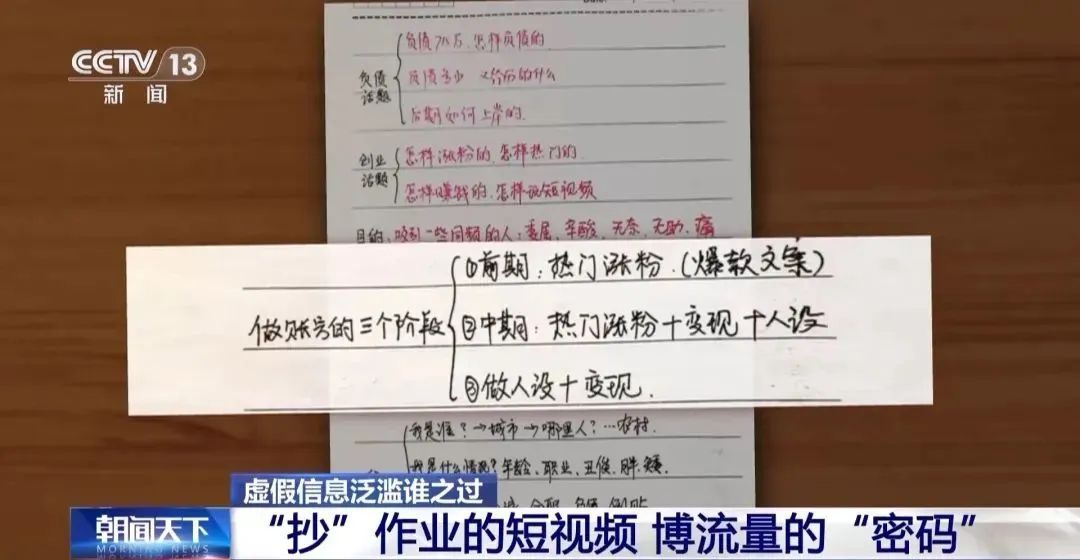 CCTV 13
新闻
负债话题
怎样负债的
负债多少 经历的什么
后期如何上岸的
创业话题
怎样涨粉的、怎样热门的
怎样赚钱的、怎样玩短视频
目的：吸引一些同频的人：委屈、辛酸、无奈、无助、痛
做账号的三个阶段
①前期：热门涨粉.(爆款文案)
②中期：热门涨粉+变现+人设
③做人设+变现.
我是谁？→城市→哪里人？…农村.
我是什么情况？年龄、职业、丑俊、胖、矮.
虚假信息泛滥谁之过
朝闻天下
MORNING NEWS
“抄”作业的短视频 博流量的“密码”